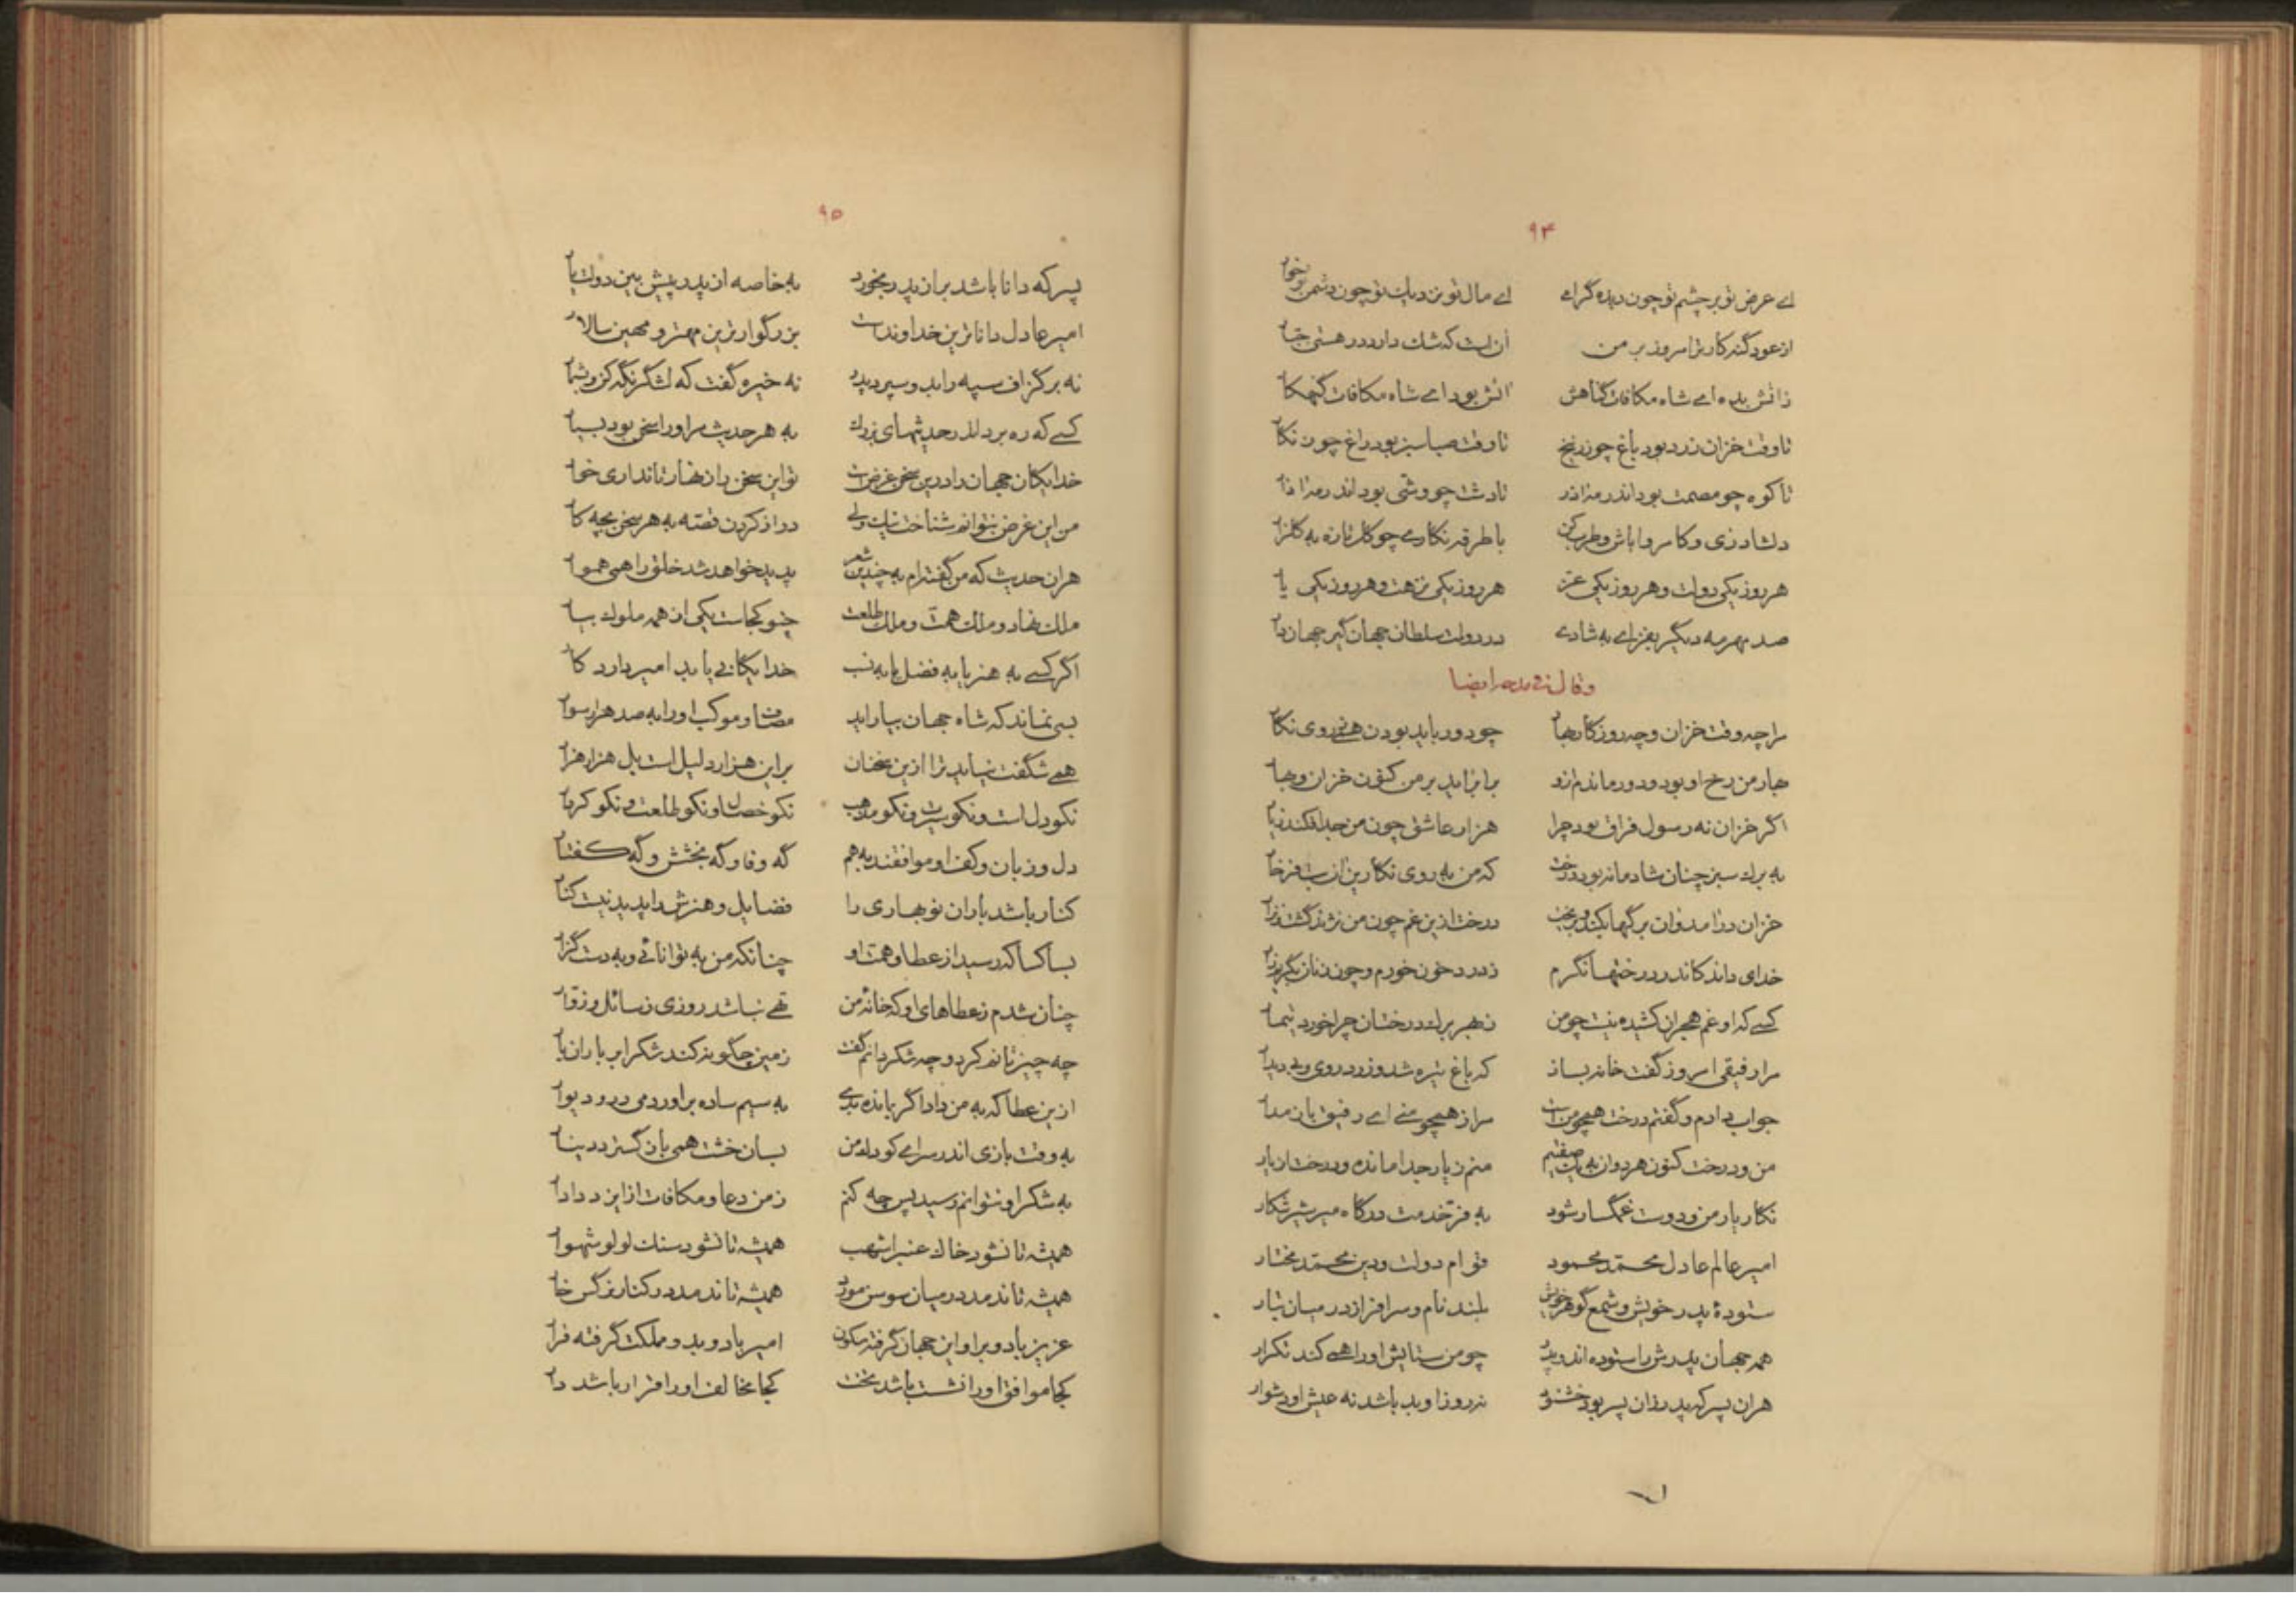 ۹۴
اے عرض تو بر چشم تو چون دیده گرامے اے مال تو نزدیك تو چون دشمن تو خوار
از عود گنه کار ترا سروز بر من آن است که شك دارد در هستی جبار
زانش بده اے شاه مکافات گناهش آتش بود اے شاه مکافات گنهکار
تا وقت خزان زرد بود باغ چو زرنیخ تا وقت صبا سبز بود راغ چون نگار
تا کوه چو مصمت بود اندر مه اذر تا دشت چو وشی بود اندر مه اذار
دلشاد زی و کامروا باش و طرب کن با طرفه نگارے چو گل تازه به گلزار
هر روز یکی دولت و هر روز یکی عز هر روز یکی نزهت و هر روز یکی یار
صد مهرمه دیگر بفزاے به شادے در دولت سلطان جهان گیر جهان دار
و قال فی مدحه ایضا
مرا چه وقت خزان و چه روزگار بهار چو دور باید بودن همی ز روی نگار
بهار من رخ او بود و دور ماندم ازو برابر اید بر من کنون خزان و بهار
اگر خزان نه رسول فراق بود چرا هزار عاشق چون من جدا فکند ز یار
به برك سبز چنان شادمانه بود درخت که من به روی نگارین آن بت فرخار
خزان درامد و ان برگها بکند و بریخت درخت ازین غم چون من نژند گشت و نزار
خدای داند کاندر درختها نگرم ز درد خون خورم و چون زنان بگریم زار
کسے که او غم هجران کشیده نیست چو من ز بهر برك درختان چرا خورد تیمار
مرا رفیقی امروز گفت خانه بساز که باغ تیره شد و زرد روی و بی دیدار
جواب دادم و گفتم درخت همچو من است مرا ز همچو منے اے رفیق باز مدار
من و درخت کنون هر دوان به یك صفتیم منم ز یار جدا مانده و درخت از بار
نگار یار من و دوست غمگسار شود به فر خدمت درگاه میر شیر شکار
امیر عالم عادل محمد محمود قوام دولت و دین محمد مختار
ستودهٔ پدر خویش و شمع گوهر خویش بلند نام و سرافراز در میان تبار
همه جهان پدرش را ستوده اند و پدر چو من ستایش او را همے کند تکرار
هران پسر که پدر زان پسر بود خشنود نه روز او بد باشد نه عیش او دشوار
۹۵
پسر که دانا باشد بر از پدر بخورد به خاصه از پدر پیش بین دولت یار
امیر عادل داناترین خداوند است بزرگوارترین مهتر و مهین سالار
نه بر گزاف سپه را بدو سپرد پدر نه خیره گفت که لشگر نگه کن و بشمار
کسے که ره برد اندر حدیثهای بزرك به هر حدیث مر او را سخن بود بسیار
خدایگان جهان را درین سخن غرض است تو این سخن را زنهار تا نداری خوار
من این غرض بتوانم شناخت نیك ولی دراز کردن قصه به هر سخن بچه کار
هران حدیث که من گفته ام به چندین شعر پدید خواهد شد خلق را همی هموار
ملك نهاد و ملك همت و ملك طلعت چنو کجاست یکی از همه ملوك بیار
اگر کسے به هنر یا به فضل یا به نسب خدایگانی یابد امیر دارد کار
بسی نماند که شاه جهان بیاراید مصاف و موکب او را به صد هزار سوار
همے شگفت نیاید ترا ازین سخنان بر این هزار دلیل است بل هزار هزار
نکو دل است و نکو سیرت و نکو مذهب نکو خصال و نکو طلعت و نکو کردار
دل و زبان و کف او موافقند به هم گه وفا و گه بخشش و گه گفتار
کنار باشد باران نوبهاری را فضایل و هنرش را پدید نیست کنار
بسا کسا که رسید از عطا و همت او چنانکه من به توانائی و به دست گزار
چنان شدم ز عطاهای او که خانهٔ من تهے نباشد روزی ز سائل و زوار
چه چیز تانم کرد و چه شکر دانم گفت زمین چگونه کند شکر ابر باران بار
ازین عطا که به من داد اگر بمانده بدے به سیم ساده براوردمی در و دیوار
به وقت بازی اندر سراے کودك من بسان خشت همی باز گسترد دینار
به شکر او نتوانم رسید پس چه کنم ز من دعا و مکافات از ایزد دادار
همیشه تا نشود خاك عنبر اشهب همیشه تا نشود سنك لولو شهوار
همیشه تا ندمد در میان سوسن مورد همیشه تا ندمد در کنار نرگس خار
عزیز باد و بر او این جهان گرفته سکون امیر باد و بدو مملکت گرفته قرار
کجا موافق او را نشست باشد تخت کجا مخالف او را قرار باشد دار